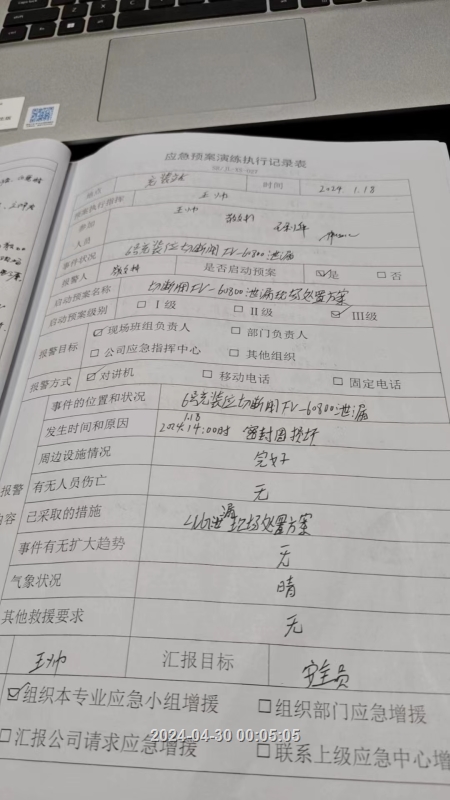 应急预案演练执行记录表
地点 时间 2024 1.18
预案执行指挥 王帅
参加人员 王帅
事件状况 6号充装区切断阀FV-60800泄漏
报警人 是否启动预案 ☑是 □否
启动预案名称 切断阀FV-60800泄漏现场处置方案
启动预案级别 □Ⅰ级 □Ⅱ级 ☑Ⅲ级
报警目标 ☑现场班组负责人 □部门负责人
□公司应急指挥中心 □其他组织
报警方式 ☑对讲机 □移动电话 □固定电话
事件的位置和状况 6号充装区切断阀FV-60800泄漏
发生时间和原因 2024.1.18 14:00时 密封圈损坏
周边设施情况 完好
报警内容 有无人员伤亡 无
已采取的措施 泄漏现场处置方案
事件有无扩大趋势 无
气象状况 晴
其他救援要求 无
王帅 汇报目标 安全员
☑组织本专业应急小组增援 □组织部门应急增援
□汇报公司请求应急增援 □联系上级应急中心增
2024-04-30 00:05:05